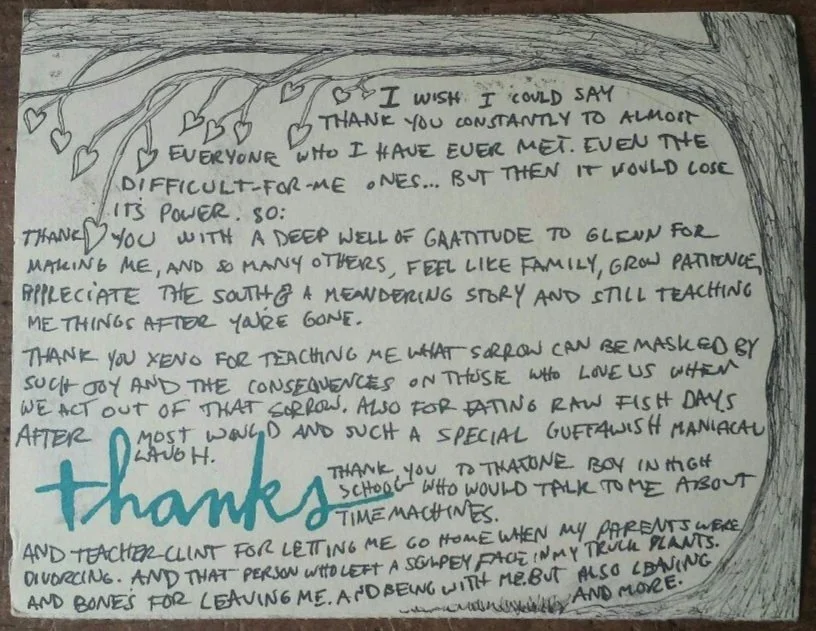 I WISH I COULD SAY
THANK YOU CONSTANTLY TO ALMOST
EVERYONE WHO I HAVE EVER MET. EVEN THE
DIFFICULT-FOR-ME ONES... BUT THEN IT WOULD LOSE
ITS POWER. SO:
THANK YOU WITH A DEEP WELL OF GRATITUDE TO GLENN FOR
MAKING ME, AND SO MANY OTHERS, FEEL LIKE FAMILY, GROW PATIENCE,
APPRECIATE THE SOUTH & A MEANDERING STORY AND STILL TEACHING
ME THINGS AFTER YOU'RE GONE.
THANK YOU XENO FOR TEACHING ME WHAT SORROW CAN BE MASKED BY
SUCH JOY AND THE CONSEQUENCES ON THOSE WHO LOVE US WHEN
WE ACT OUT OF THAT SORROW. ALSO FOR EATING RAW FISH DAYS
AFTER MOST WOULD AND SUCH A SPECIAL GUFFAWISH MANIACAL
LAUGH.
thanks
THANK YOU TO THAT ONE BOY IN HIGH
SCHOOL WHO WOULD TALK TO ME ABOUT
TIME MACHINES.
AND TEACHER CLINT FOR LETTING ME GO HOME WHEN MY PARENTS WERE
DIVORCING. AND THAT PERSON WHO LEFT A SCULPEY FACE IN MY TRUCK PLANTS.
AND BONES FOR LEAVING ME. AND BEING WITH ME. BUT ALSO LEAVING
AND MORE.